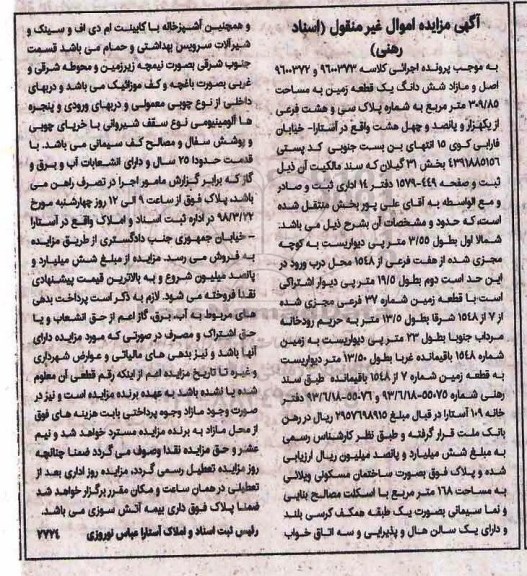 آگهی مزایده اموال غیر منقول (اسناد
رهنی)
به موجب پرونده اجرائی کلاسه ۹۶۰۰۳۷۳ و ۹۶۰۰۳۷۲
اصل و مازاد شش دانگ یک قطعه زمین به مساحت
۳۰۹/۸۵ متر مربع به شماره پلاک سی و هشت فرعی
از یکهزار و پانصد و چهل هشت واقع در آستارا- خیابان
فارابی کوی ۱۵ انتهای بن بست جنوبی کد پستی
۴۳۹۱۸۸۵۱۵۶ بخش ۳۱ گیلان که سند مالکیت آن ذیل
ثبت و صفحه ۴۴۹-۱۵۷۹ دفتر ۱۴ اداری ثبت و صادر
و مع الواسطه به آقای علی پور بخش منتقل شده
است، که حدود و مشخصات آن بشرح ذیل می باشد:
شمالا اول بطول ۳/۵۵ متر پی دیواریست به کوچه
مجزی شده از هفت فرعی از ۱۵۴۸ محل درب ورود در
این حد است دوم بطول ۱۹/۵ متر پی دیوار اشتراکی
است با قطعه زمین شماره ۳۷ فرعی مجزی شده
از ۷ از ۱۵۴۸ شرقا بطول ۱۳/۵ متر به حریم رودخانه
مرداب جنوبا بطول ۲۳ متر پی دیواریست به زمین
شماره ۱۵۴۸ باقیمانده غربا بطول ۱۳/۵۰ متر دیواریست
به قطعه زمین شماره ۷ از ۱۵۴۸ باقیمانده طبق سند
رهنی شماره ۵۵۰۷۵-۹۳/۶/۱۸ و ۵۵۰۷۶-۹۳/۶/۱۸ دفتر
خانه ۱۰۹ آستارا در قبال مبلغ ۲۹۵۷۶۹۸۹۱۵ ریال در رهن
بانک ملت قرار گرفته و طبق نظر کارشناس رسمی
به مبلغ شش میلیارد و پانصد میلیون ریال ارزیابی
شده و پلاک فوق بصورت ساختمان مسکونی ویلائی
به مساحت ۱۶۸ متر مربع با اسکلت مصالح بنایی
و نما سیمانی بصورت یک طبقه همکف کرسی بلند
و دارای یک سالن هال و پذیرایی و سه اتاق خواب
و همچنین آشپزخانه با کابینت ام دی اف و سینک و
شیرآلات سرویس بهداشتی و حمام می باشد قسمت
جنوب شرقی بصورت نیمچه زیرزمین و محوطه شرقی و
غربی بصورت باغچه و کف موزائیک می باشد و دربهای
داخلی از نوع چوبی معمولی و دربهای ورودی و پنجره
ها آلومینیومی نوع سقف شیروانی با خرپای چوبی
و پوشش سفال و مصالح کف سیمانی می باشد. با
قدمت حدودا ۲۵ سال و دارای انشعابات آب و برق و
گاز که برابر گزارش مامور اجرا در تصرف راهن می
باشد، پلاک فوق از ساعت ۹ الی ۱۲ روز چهارشنبه مورخ
۹۸/۳/۲۲ در اداره ثبت اسناد و املاک واقع در آستارا
– خیابان جمهوری جنب دادگستری از طریق مزایده
به فروش می رسد. مزایده از مبلغ شش میلیارد و
پانصد میلیون شروع و به بالاترین قیمت پیشنهادی
نقدا فروخته می شود. لازم به ذکر است پرداخت بدهی
های مربوط به آب، برق، گاز اعم از حق انشعاب و یا
حق اشتراک و مصرف در صورتی که مورد مزایده دارای
آنها باشد و نیز بدهی های مالیاتی و عوارض شهرداری
و غیره تا تاریخ مزایده اعم از اینکه رقم قطعی آن معلوم
شده یا نشده باشد به عهده برنده مزایده است و نیز در
صورت وجود مازاد وجوه پرداختی بابت هزینه های فوق
از محل مازاد به برنده مزایده مسترد خواهد شد و نیم
عشر و حق مزایده نقدا وصول می گردد ضمنا چنانچه
روز مزایده تعطیل رسمی گردد، مزایده روز اداری بعد از
تعطیلی در همان ساعت و مکان مقرر برگزار خواهد شد
ضمنا پلاک فوق داری بیمه آتش سوزی می باشد.
رئیس ثبت اسناد و املاک آستارا عباس نوروزی ۷۷۲۴